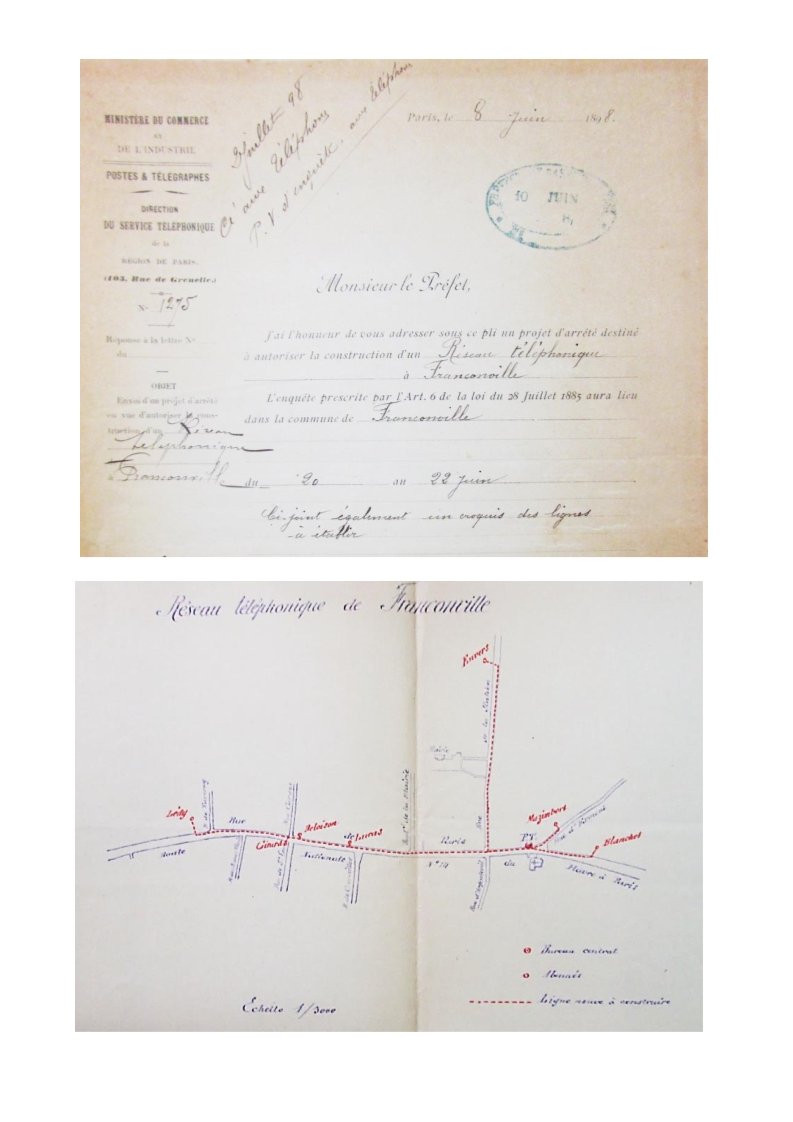 MINISTÈRE DU COMMERCE
ET
DE L'INDUSTRIE
POSTES & TÉLÉGRAPHES
DIRECTION
DU SERVICE TÉLÉPHONIQUE
de la
RÉGION DE PARIS.
(103, Rue de Grenelle)
N° 1275
Réponse à la lettre N°
du
OBJET
Envoi d'un projet d'arrêté
en vue d'autoriser la cons-
truction d'un Réseau
téléphonique
à Franconville
juillet 98
téléphone
P.V d'enquête. avec téléphone
Paris, le 8 Juin 1898.
10 JUIN
Monsieur le Préfet,
J'ai l'honneur de vous adresser sous ce pli un projet d'arrêté destiné
à autoriser la construction d'un Réseau téléphonique
à Franconville
L'enquête prescrite par l'Art. 6 de la loi du 28 Juillet 1885 aura lieu
dans la commune de Franconville
du 20 au 22 Juin
Ci-joint également un croquis des lignes
à établir
Réseau téléphonique de Franconville
Envers
Rue de la Station
Mairie
Lédy
Rue de Paris
Girard
Beloison
Lucas
Route Nationale N° 14 du Havre à Paris
Mazimbert
P.T.
Blanchet
Bureau central
Abonnés
Ligne neuve à construire
Echelle 1/3000